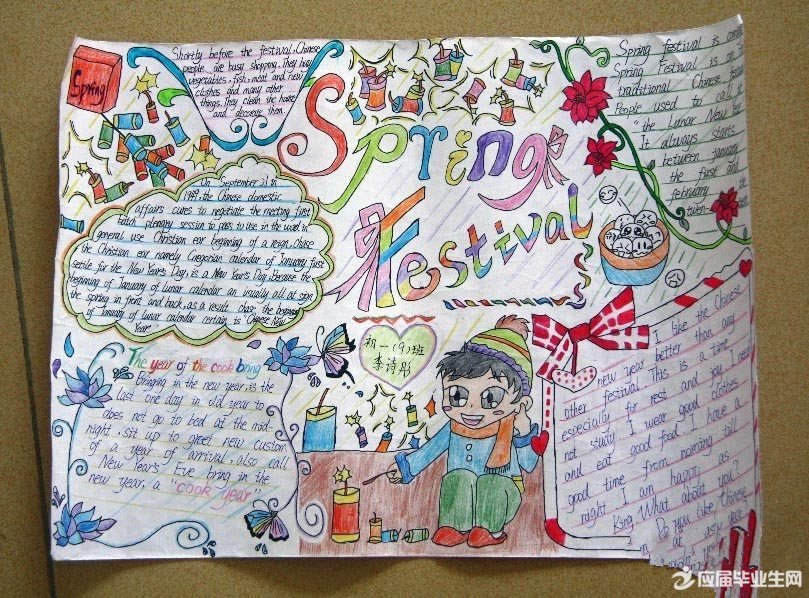 Spring
Festival
Spring
Shortly before the festival, Chinese
people are busy shopping. They buy
vegetables, fish, meat and new
clothes and many other
things. They clean the house
and decorate them.
Spring festival is
Spring Festival is an
traditional Chinese
People used to call it
"the Lunar New
It always starts
between january
the first and
february the
twen-
On September 21 in
1949, the Chinese domestic
affairs cures to negotiate the meeting first
batch plenary session to pass to use in the world in
general use Christian ear beginning of a reign, Chinse
the Christian ear namely Gregorian calendar of January first
settle for the New Year's Day, is a New Year's Day; Because the
beginning of January of lunar calendar an usually all at sign
the spring in front and back, as a result chas the beginning
of January of lunar calendar certain is "Chinese New
Year"
初一(9)班
李诗彤
The year of the cook bring
Bringing in the new year, is the
last one day in old year to
does not go to bed at the mid-
night, sit up to greet new custom
of a year of arrival, also call
New Years' Eve bring in the
new year, a "cook year"
I like the Chinese
new year better than any
other festival This is a time
especially for rest and joy I need
not study I wear good clothes
and eat good food I have a
good time from morning till
night I am happy as
King What about you?
Do you like Chinese
应届毕业生网